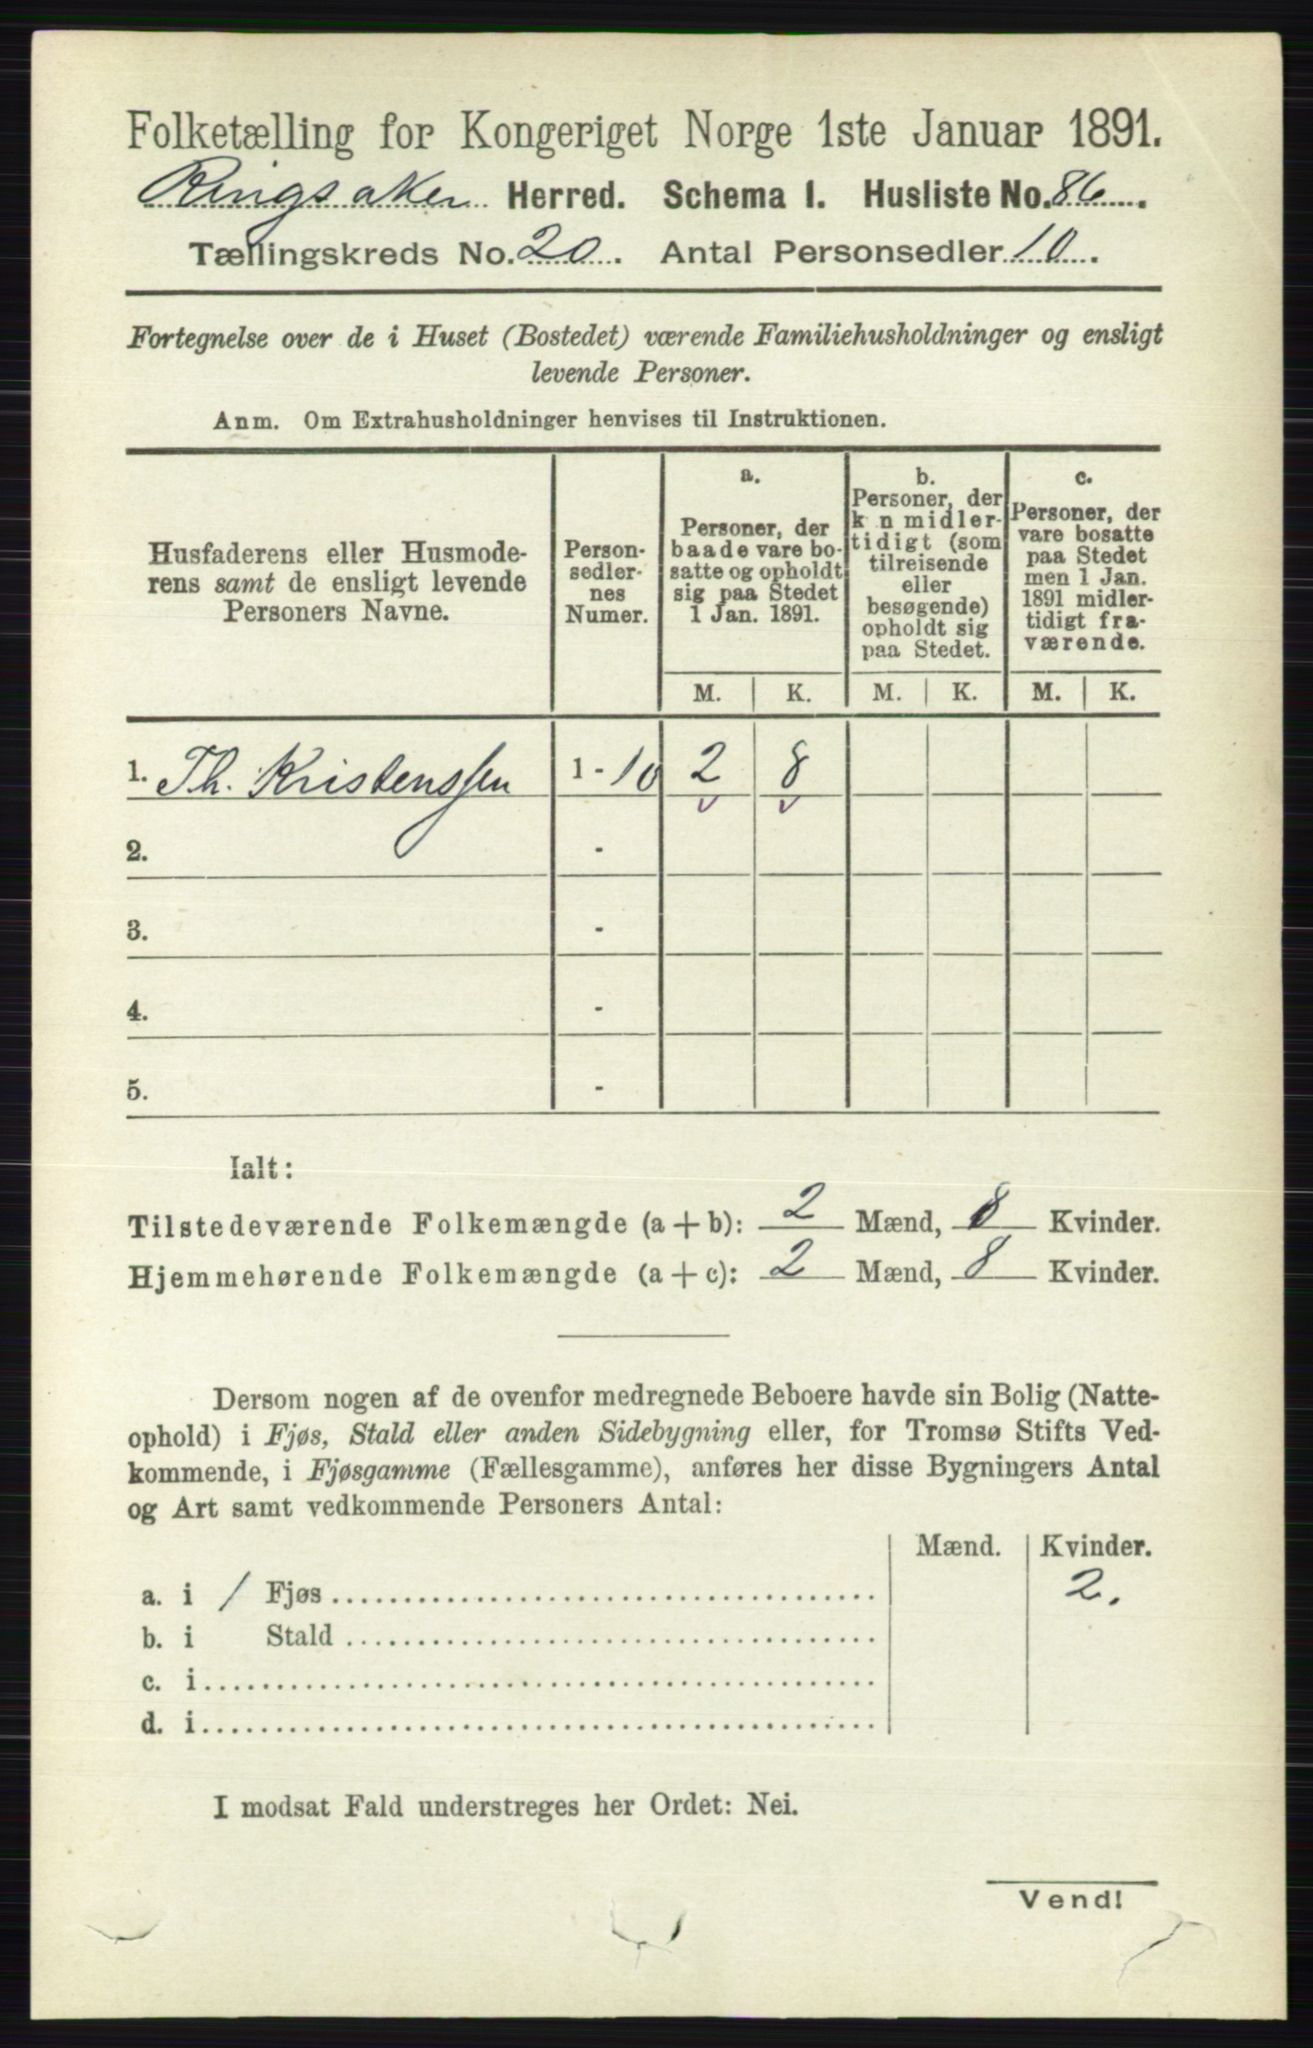 Folketælling for Kongeriget Norge 1ste Januar 1891.
Ringsaker Herred. Schema I. Husliste No. 86.
Tællingskreds No. 20. Antal Personsedler 10.
Fortegnelse over de i Huset (Bostedet) værende Familiehusholdninger og ensligt
levende Personer.
Anm. Om Extrahusholdninger henvises til Instruktionen.
Husfaderens eller Husmode-
rens samt de ensligt levende
Personers Navne.
Person-
sedler-
nes
Numer.
a.
Personer, der
baade vare bo-
satte og opholdt
sig paa Stedet
1 Jan. 1891.
b.
Personer, der
k n midler-
tidigt (som
tilreisende
eller
besøgende)
opholdt sig
paa Stedet.
c.
Personer, der
vare bosatte
paa Stedet
men 1 Jan.
1891 midler-
tidigt fra-
værende.
M. K. M. K. M. K.
1. Th. Kristenssen 1 - 10 2 8
2. -
3. -
4. -
5. -
Ialt:
Tilstedeværende Folkemængde (a + b): 2 Mænd, 8 Kvinder.
Hjemmehørende Folkemængde (a + c): 2 Mænd, 8 Kvinder.
Dersom nogen af de ovenfor medregnede Beboere havde sin Bolig (Natte-
ophold) i Fjøs, Stald eller anden Sidebygning eller, for Tromsø Stifts Ved-
kommende, i Fjøsgamme (Fællesgamme), anføres her disse Bygningers Antal
og Art samt vedkommende Personers Antal:
Mænd. Kvinder.
a. i 1 Fjøs 2.
b. i Stald
c. i
d. i
I modsat Fald understreges her Ordet: Nei.
Vend!